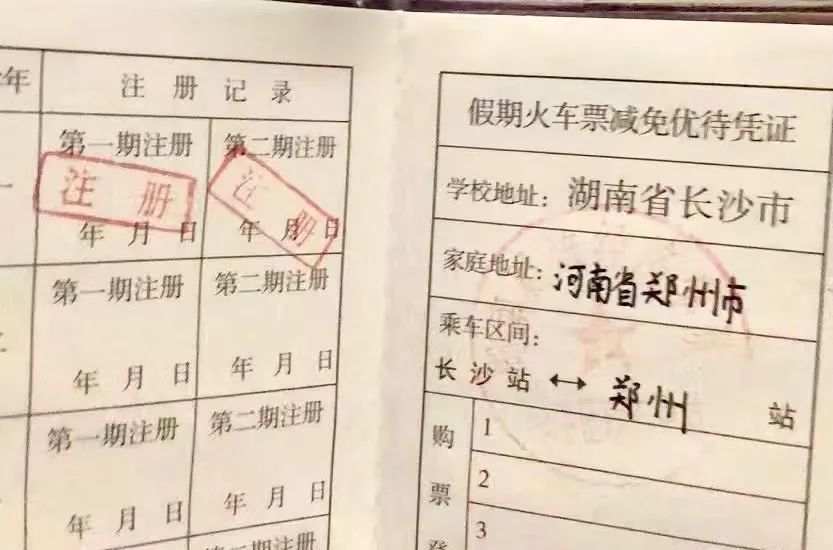 年
注册记录
第一期注册
第二期注册
注册
注册
年 月 日
年 月 日
第一期注册
第二期注册
年 月 日
年 月 日
第一期注册
第二期注册
年 月 日
年 月 日
假期火车票减免优待凭证
学校地址：湖南省长沙市
家庭地址：河南省郑州市
乘车区间：
长沙站↔郑州 站
购票
1
2
3